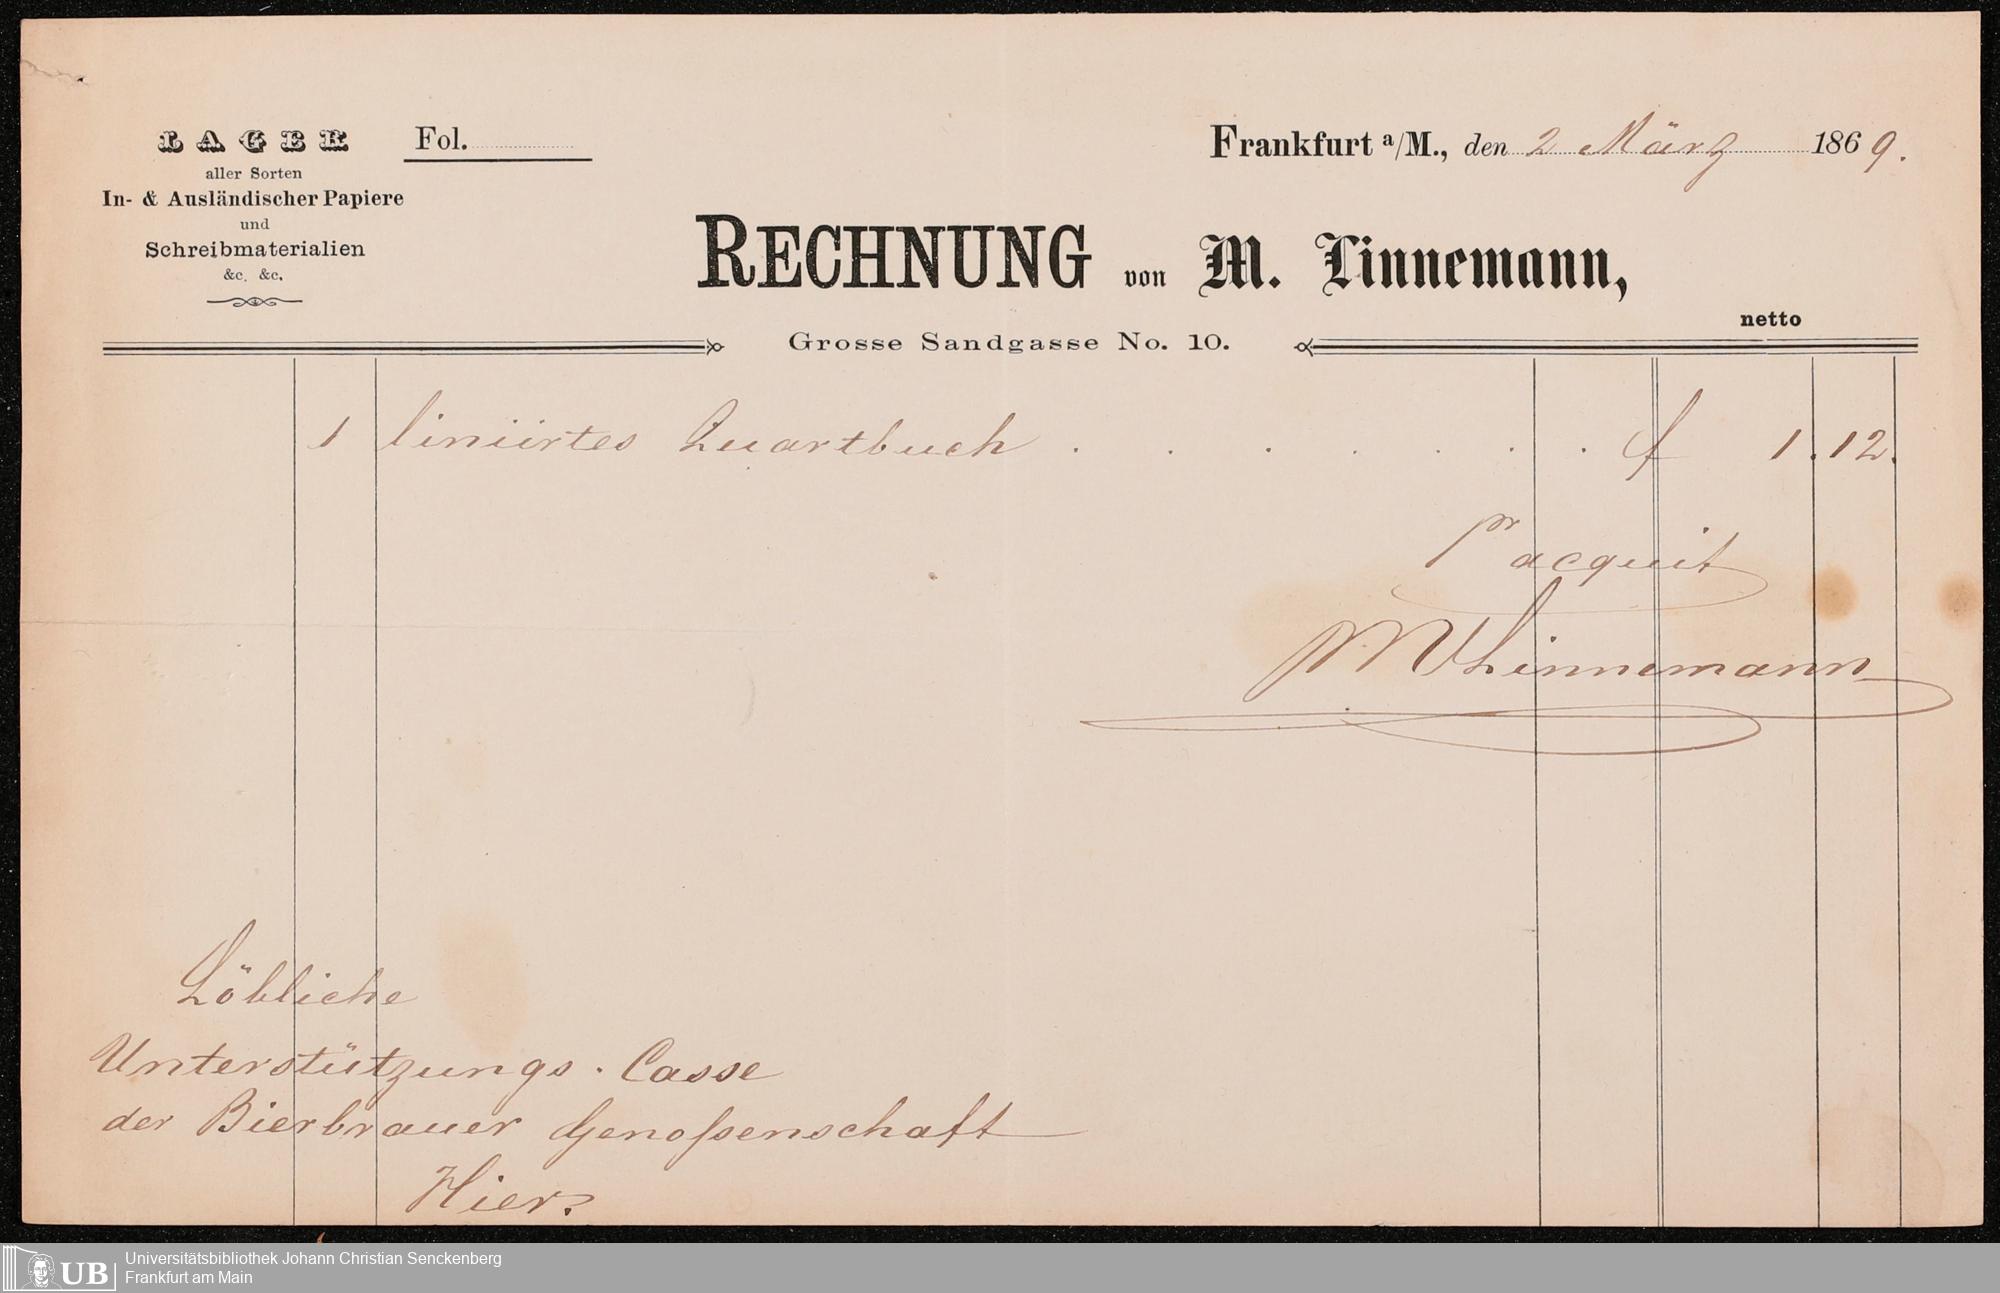 LAGER
aller Sorten
In- & Ausländischer Papiere
und
Schreibmaterialien
&c. &c.
Fol.
Frankfurt a/M., den 2 März 1869.
RECHNUNG von M. Linnemann,
netto
Grosse Sandgasse No. 10.
1 liniirtes Quartbuch . . . . . . . f 1.12.
pr acquit
M Linnemann
Löbliche
Unterstützungs-Casse
der Bierbrauer Genoſsenschaft
Hier.
UB
Universitätsbibliothek Johann Christian Senckenberg
Frankfurt am Main